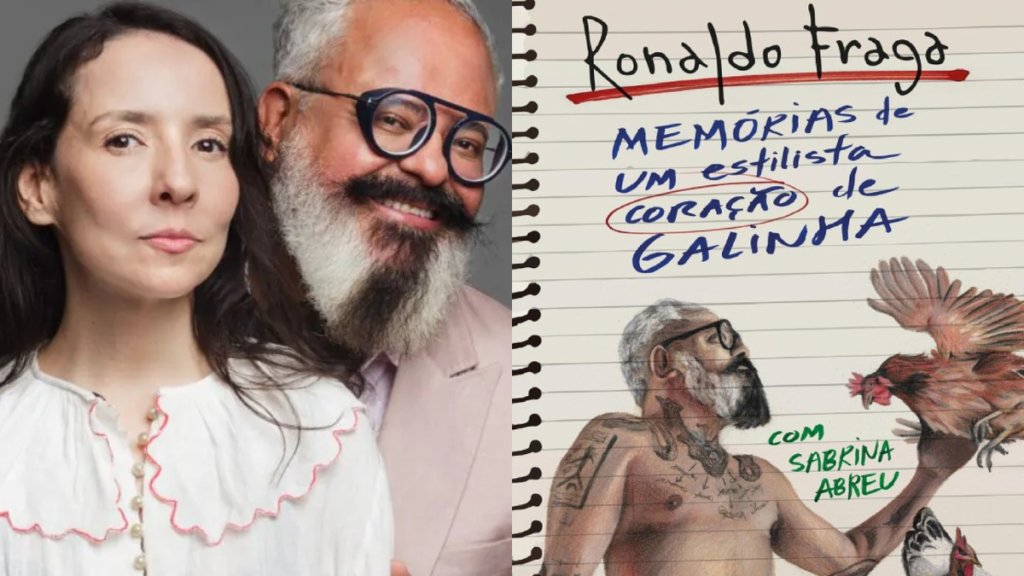 Ronaldo Fraga
MEMÓRIAS de
UM estilista
CORAÇÃO de
GALINHA
COM
SABRINA
ABREU